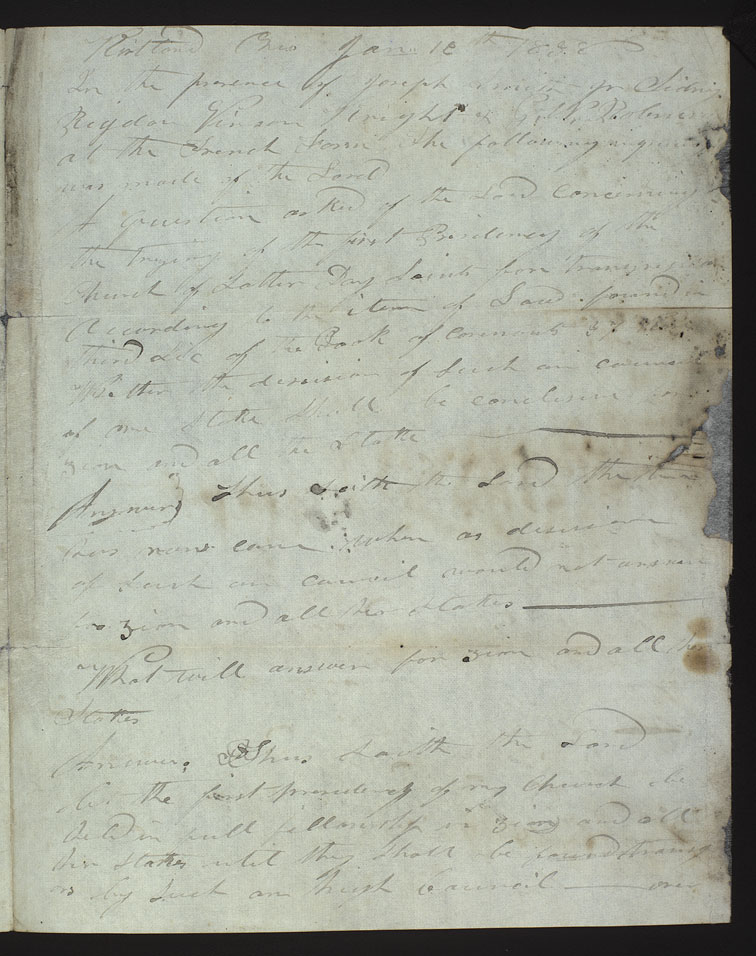 Kirtland Ohio Jan 12th 1838
In the presence of Joseph Smith Jr Sidney
Rigdon Vinson Knight & Geo
at the French Farm the following inquiry
was made of the Lord
A question asked of the Lord concerning
the trying of the first Presidency of the
Church of Latter Day Saints for transgression
According to the item of Law found in
third sec of the Book of covenants 37
Whether the desision of such an council
of one stake shall be conclusive for
zion and all the stakes
Answer Thus saith the Lord the time
has now come when a desision
of such an council would not answer
for zion and all her stakes
What will answer for zion and all her
stakes
Answer. Thus saith the Lord
let the first presidency of my Church be
held in full fellowship in zion and all
her stakes until they shall be found transg
rs by such an high council over